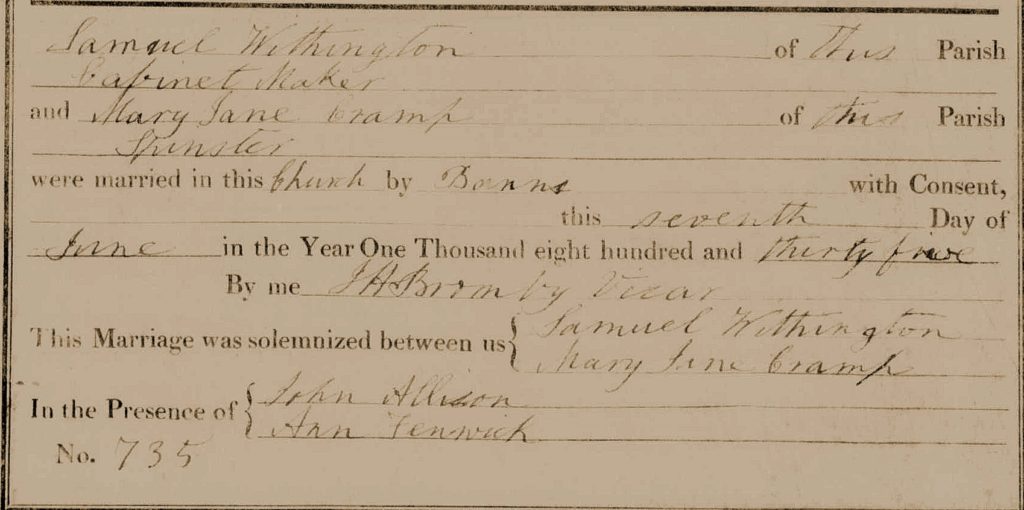 Samuel Withington of this Parish
Cabinet Maker
and Mary Jane Cramp of this Parish
Spinster
were married in this Church by Banns with Consent,
this seventh Day of
June in the Year One Thousand eight hundred and thirty five
By me J H Bromby Vicar
This Marriage was solemnized between us { Samuel Withington
Mary Jane Cramp
In the Presence of { John Allison
Ann Fenwick
No. 735